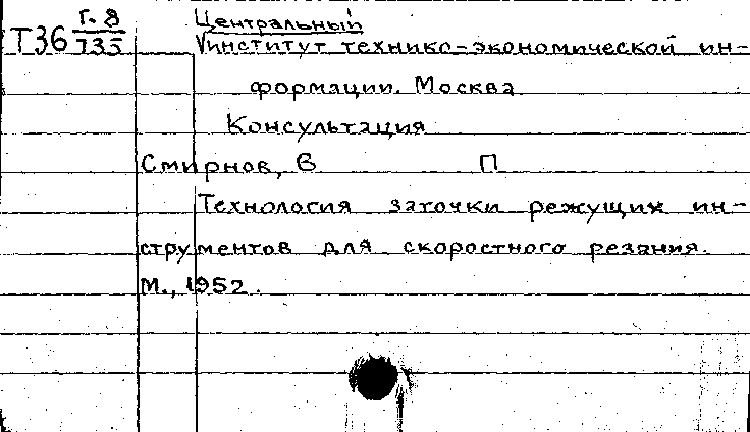 Т36 Г.8/735
Центральный
институт технико-экономической ин-
формации. Москва
Консультация
Смирнов, В П
Технология заточки режущих ин-
струментов для скоростного резания.
М., 1952.